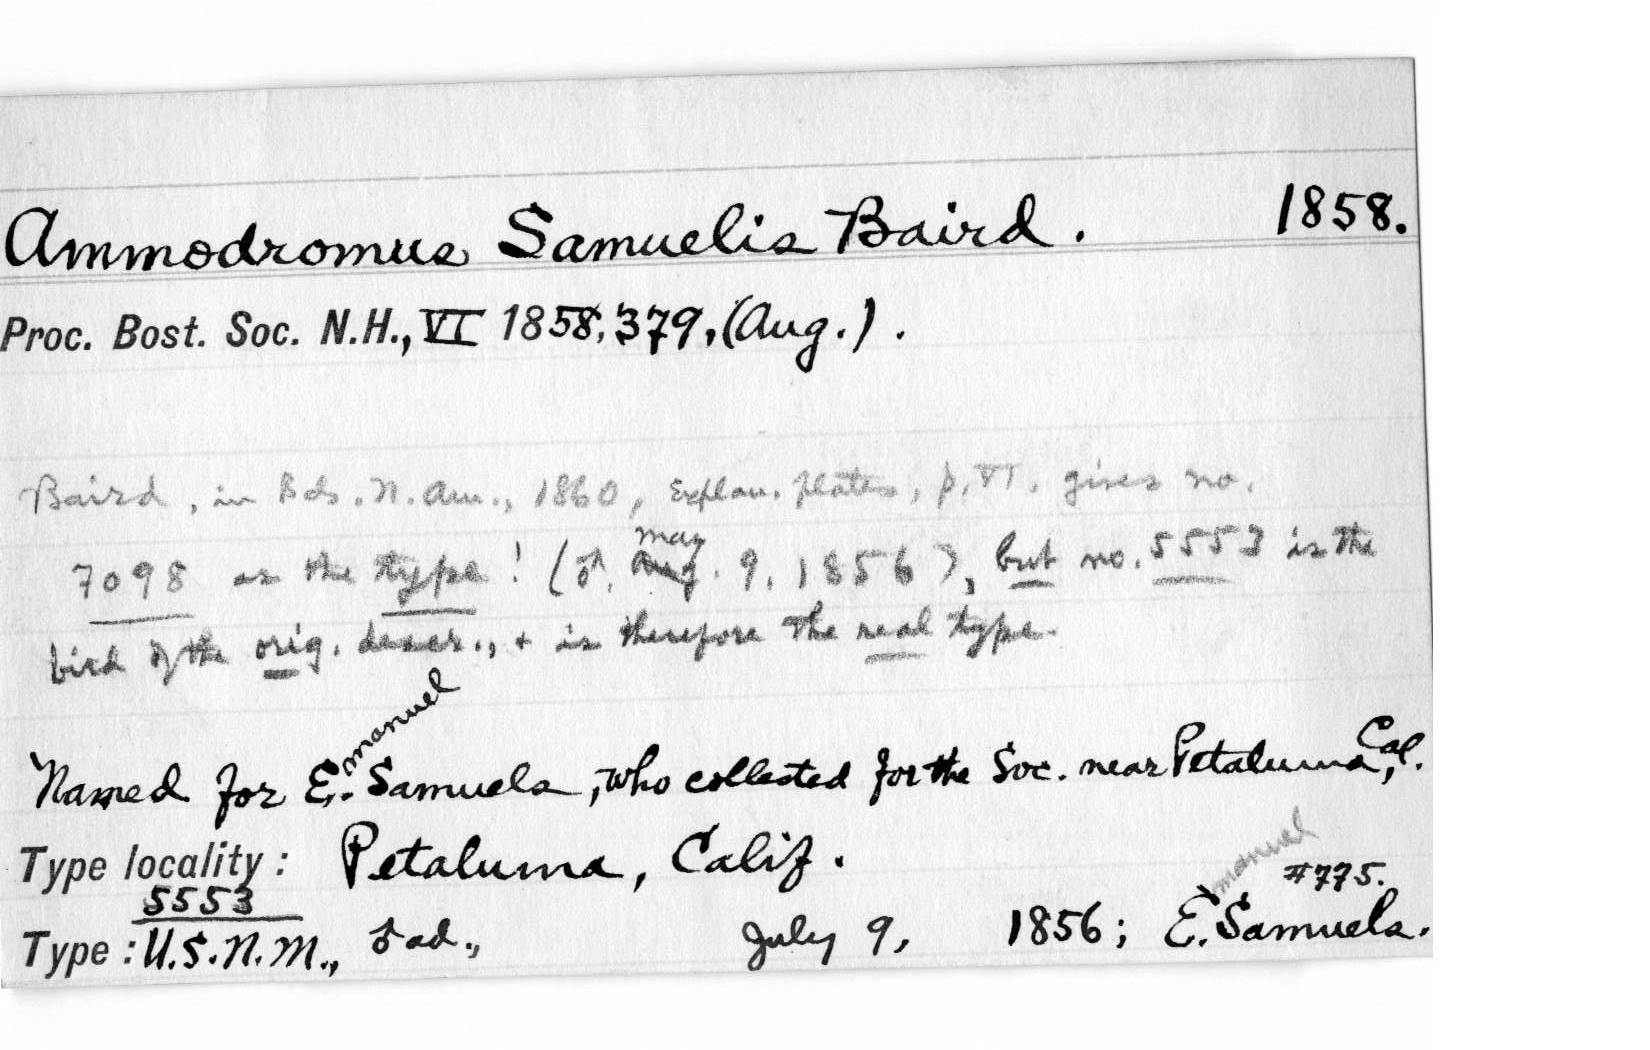 Ammodromus Samuelis Baird. 1858.
Proc. Bost. Soc. N.H., VI 1858, 379, (Aug.).
Baird, in Bds. N. Am., 1860, Explan. plates, p. VI. gives no.
7098 as the type! (♂, Aug. May 9, 1856), but no. 5553 is the
bird of the orig. descr., + is therefore the real type.
Named for Emanuel Samuels, who collected for the Soc. near Petaluma, Cal.
Type locality: Petaluma, Calif.
5553 #775.
Type: U.S.N.M., ♂ ad., July 9, 1856; Emanuel Samuels.